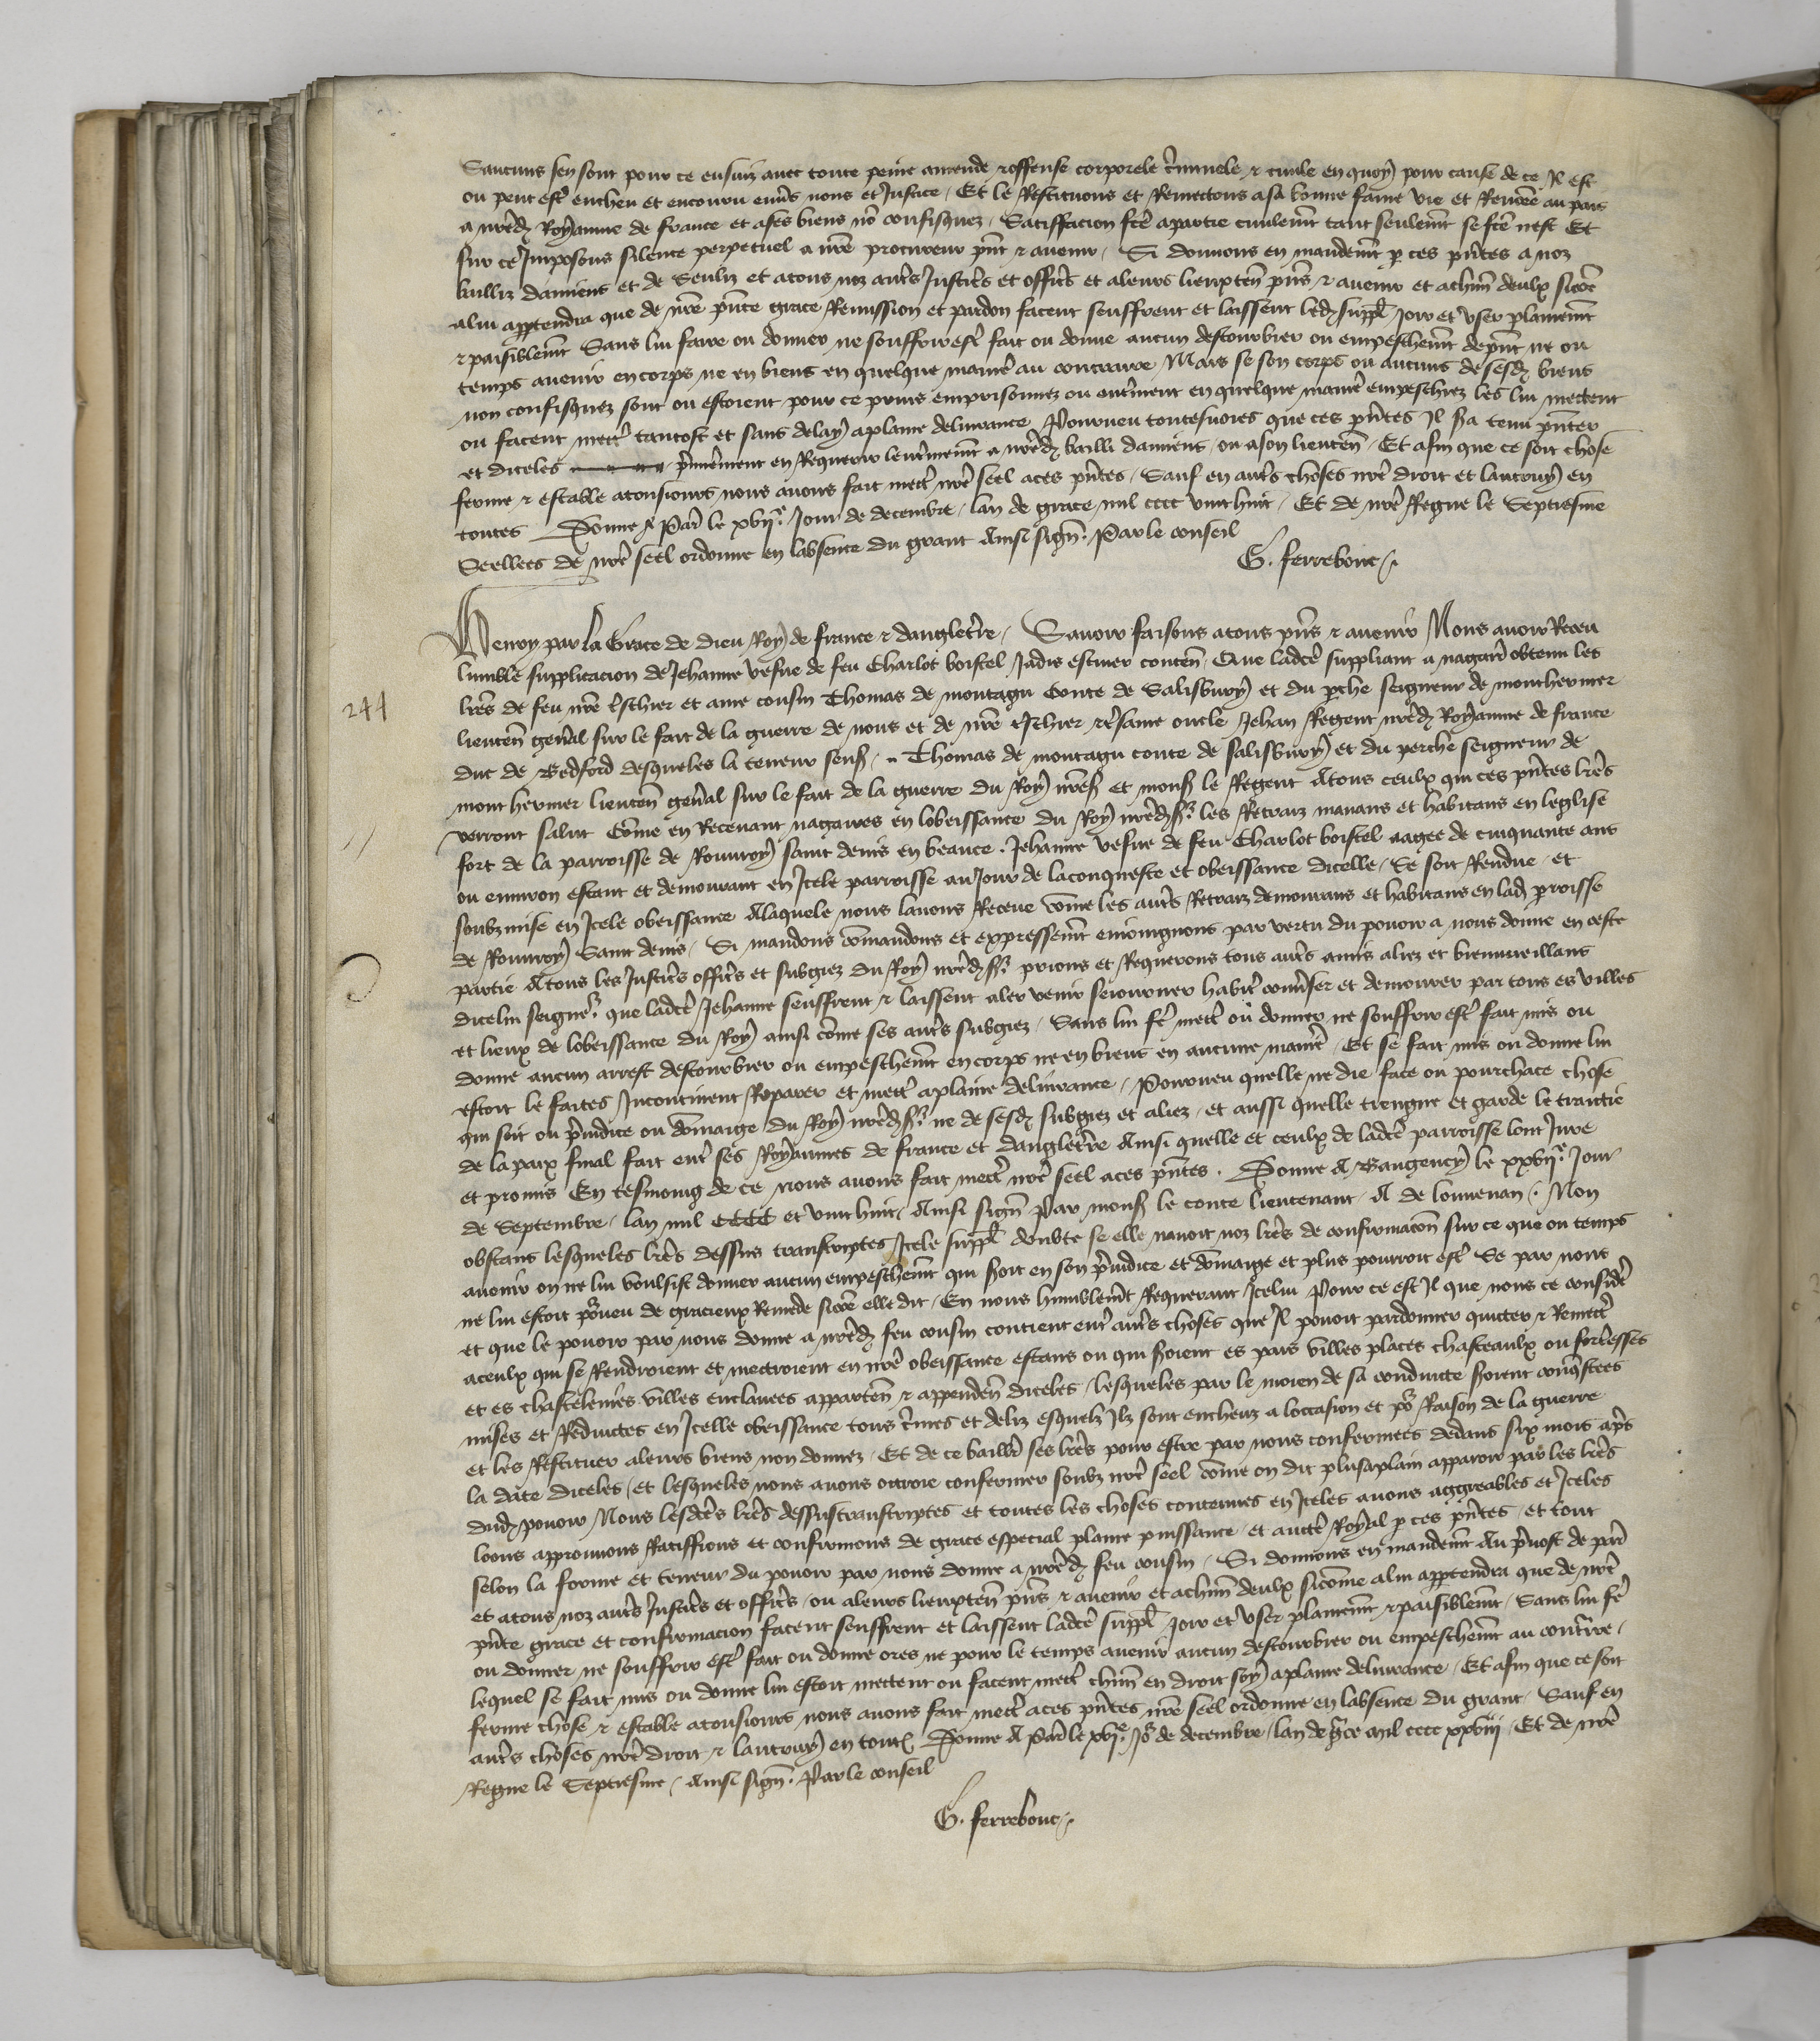 Saucuns sen sont pour ce ensuiz avec toute peine amende & offense corporele criminele & civile en quoy pour cause de ce Il est
ou peut estre encheu et encouru envers nous et Justice / Et le Restituons et Remettons a sa bonne fame vie et Renommee au pais
a nostredit Royaume de france et a ses biens non confisquez / Satisfacion faicte a partie civilement tant seulement se faicte nest Et
sur ce Imposons silence perpetuel a nostre procureur present & avenir / Si donnons en mandement par ces presentes a noz
bailliz damiens et de Senliz et a tous noz autres Justiciers et officiers et a leurs lieuxtenans presens & avenir et a chascun deulx sicomme
a lui appartendra que de nostre presente grace Remission et pardon facent seuffrent et laissent ledit suppliant Joir et user plainement
& paisiblement Sans lui faire ou donner ne souffrir estre fait ou donne aucun destourbier ou empeschement de present ne ou
temps avenir en corps ne en biens en quelque maniere au contraire Mais se son corps ou aucuns de sesdiz biens
non confisquez sont ou estoient pour ce prins emprisonnez ou autrement en quelque maniere empeschiez les lui mettent
ou facent mettre tantost et sans delay a plaine delivrance Pourveu toutesvoies que ces presentes Il sera tenu presenter
et diceles premierement en Requerir lenterinement a nostredit bailli damiens / ou a son lieutenant / Et afin que ce soit chose
ferme & estable a tousiours nous avons fait mettre nostre seel a ces presentes / Sauf en autres choses nostre droit et lautruy en
toutes Donne a Paris le xvij.e Jour de decembre / lan de grace mil cccc vint huit / Et de nostre Regne le Septiesme
Seellees de nostre seel ordonne en labsence du grant Ainsi signe. Par le conseil
G. ferrebouc
Henry par la Grace de Dieu Roy de france & dangleterre / Savoir faisons a tous presens & avenir Nous avoir Receu
lumble supplicacion de Jehanne vesve de feu Charlot boistel Jadis escuier contenant Que ladicte suppliant a nagaires obtenu les
244
lettres de feu nostre treschier et ame cousin Thomas de montagu Conte de Salisbury et du perche seigneur de monthermer
lieutenant general sur le fait de la guerre de nous et de nostre treschier & tresame oncle Jehan Regent nostredit Royaume de france
duc de Bedford desqueles la teneur sensuit / Thomas de montagu conte de salisbury et du perche seigneur de
mont hermer lieutenant general sur le fait de la guerre du Roy nostre sire et monsr le Regent A tous ceulx qui ces presentes lettres
verront salut Comme en Recevant nagaires en lobeissance du Roy nostredit sr. les Retraiz manans et habitans en leglise
fort de la parroisse de Rouvroy saint denis en beauce. Jehanne vesve de feu Charlot boistel aagee de cinquante ans
ou environ estant et demourant en Icele parroisse au Jour de la conqueste et obeissance dicelle / Se soit Rendue / et
soubzmise en Icele obeissance A laquele nous lavons Receue comme les autres Retraiz demourans et habitans en ladicte parroisse
de Rouvroy Saint denis / Si mandons commandons et expressement enioingnons par vertu du povoir a nous donne en ceste
partie A tous les Justiciers officiers et subgiez du Roy nostredit sr. prions et Requerons tous autres amis aliez et bienvueillans
dicelui seigneur que ladicte Jehanne seuffrent & laissent aler venir seiourner habiter converser et demourer par tous es villes
et lieux de lobeissance du Roy ainsi comme ses autres subgiez / Sans lui faire mettre ou donner ne souffrir estre fait mis ou
donne aucun arrest destourbier ou empeschement en corps ne en biens en aucune maniere / Et se fait mis ou donne lui
estoit le faites Incontinent Reparer et mettre a plaine delivrance / Pourveu quelle ne die face ou pourchace chose
qui soit ou preiudice ou dommaige du Roy nostredit sr. ne de sesdiz subgiez et aliez / et aussi quelle tiengne et garde le traictie
de la paix final fait entre ses Royaumes de france et dangleterre Ainsi quelle et ceulx de ladicte parroisse lont Jure
et promis En tesmoing de ce nous avons fait mettre nostre seel a ces presentes. Donne A Baugency le xxvij.e Jour
de Septembre / lan mil CCCC et vint huit / Ainsi signe Par monsr le conte lieutenant A de louvenan. Non
obstans lesqueles lettres dessus transcriptes Icele suppliant doubte se elle navoit noz lettres de confirmacion sur ce que ou temps
avenir on ne lui voulsist donner aucun empeschement qui seroit en son preiudice et dommaige et plus pourroit estre Se par nous
ne lui estoit pourveu de gracieux Remede sicomme elle dit / En nous humblement Requerant Icelui Pour ce est Il que nous ce considere
et que le povoir par nous donne a nostredit feu cousin contient entre autres choses que Il povoit pardonner quicter & Remettre
a ceulx qui se Rendroient et mettroient en nostre obeissance estans ou qui seroient es pais villes places chasteaulx ou forteresses
et es chastelenies villes enclavees appartenans & appendans diceles / lesqueles par le moien de sa conduicte seroient conquestees
mises et Reduictes en Icelle obeissance tous crimes et deliz esquelz Ilz sont encheuz a loccasion et pour Raison de la guerre
et les Restituer a leurs biens non donnez / Et de ce bailler ses lettres pour estre par nous confermees dedans six mois apres
la date diceles / et lesqueles nous avons ottroie confermer soubz nostre seel comme on dit plus a plain apparoir par les lettres
dudit povoir Nous lesdictes lettres dessus transcriptes et toutes les choses contenues en Iceles avons aggreables et Iceles
loons approuvons Ratiffions et confirmons de grace especial plaine puissance / et auctorite Royal par ces presentes / et tout
selon la forme et teneur du povoir par nous donne a nostredit feu cousin / Si donnons en mandement Au prevost de paris
et a tous noz autres Justiciers et officiers / ou a leurs lieuxtenans presens & avenir et a chascun deulx sicomme a lui appartendra que de nostre
presente grace et confirmacion facent seuffrent et laissent ladicte suppliant Joir et user plainement & paisiblement / Sans lui faire
ou donner ne souffrir estre fait ou donne ores ne pour le temps avenir aucun destourbier ou empeschement au contraire /
lequel se fait mis ou donne lui estoit mettent ou facent mettre chascun en droit soy a plaine delivrance / Et afin que ce soit
ferme chose & estable a tousiours nous avons fait mettre a ces presentes nostre seel ordonne en labsence du grant / Sauf en
autres choses nostre droit & lautruy en toutes Donne A Paris le xvij.e Jour de decembre / lan de grace mil cccc xxviij / Et de nostre
Regne le Septiesme / Ainsi signe. Par le conseil
G. ferrebouc